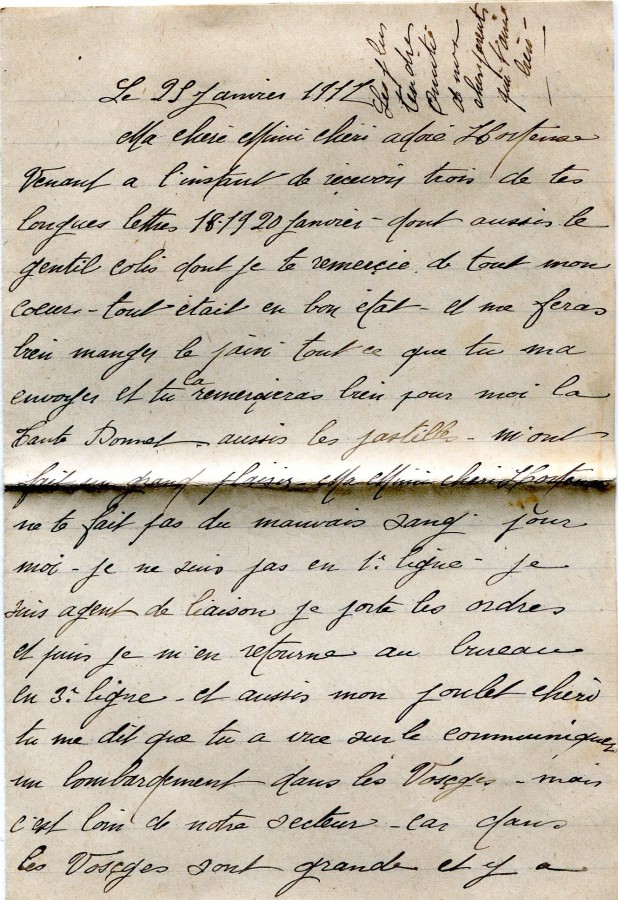 Le 25 Janvier 1917
Ma cheri Mimi cheri adoré Hortense
Venant a l'instant de recevoir trois de tes
longues lettres 18.19 20 Janvier - dont aussis le
gentil colis dont je te remercie de tout mon
coeur - tout était en bon état - et me feras
bien manger le pain tout ce que tu ma
envoyer et tu la remercieras bien pour moi la
Tante Bonnet - aussis les pastilles - m'ont
fait un grand plaisir - Ma Mimi cheri Hortense
ne te fait pas du mauvais sang pour
moi - je ne suis pas en 1e ligne - je
suis agent de liaison je porte les ordres
et puis je m'en retourne au bureau
en 3e ligne - et aussis mon poulet cheri
tu me dit que tu a vue sur le communiquer
un bombardement dans les Vosges - mais
c'est loin de notre secteur - car dans
les Vosges sont grande et y a
Les plus
tendre
amitié
a nos
chers parents
que j'aime
bien -